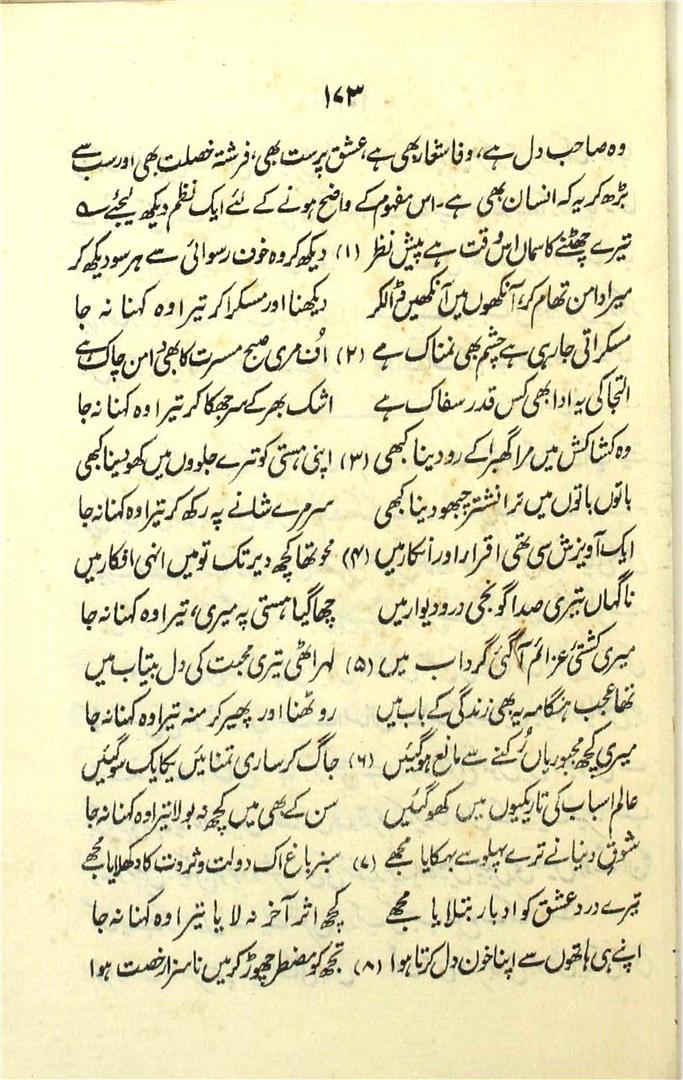 ۱۷۳
وہ صاحب دل ہے، وفا شعار بھی ہے، عشق پرست بھی، فرشتہ خصلت بھی اور سب سے
بڑھ کر یہ کہ انسان بھی ہے۔ اس مفہوم کے واضح ہونے کے لئے ایک نظم دیکھ لیجئے ؎
تیرے چھٹنے کا سماں اس وقت ہے پیش نظر (۱) دیکھ کر وہ خوف رسوائی سے ہر سو دیکھ کر
میرا دامن تھام کر، آنکھوں میں آنکھیں ڈالکر دیکھنا اور مسکرا کر تیرا وہ کہنا نہ جا
مسکراتی جا رہی ہے چشم بھی نمناک ہے (۲) اُف مری صبح مسرت کا بھی دامن چاک ہے
التجا کی یہ ادا بھی کس قدر سفاک ہے اشک بھر کے سر جھکا کر تیرا وہ کہنا نہ جا
وہ کشاکش میں مرا گھبرا کے رو دینا کبھی (۳) اپنی ہستی کو ترے جلووں میں کھو دینا کبھی
باتوں باتوں میں ترا نشتر چبھو دینا کبھی سر مرے شانے پہ رکھ کر تیرا وہ کہنا نہ جا
ایک آویزش سی تھی اقرار اور انکار میں (۴) محو تھا کچھ دیر تک تو میں انہی افکار میں
ناگہاں تیری صدا گونجی در و دیوار میں چھا گیا ہستی پہ میری، تیرا وہ کہنا نہ جا
میری کشتیٔ عزائم آ گئی گرداب میں (۵) لہر اٹھی تیری محبت کی دل بیتاب میں
تھا عجب ہنگامہ یہ بھی زندگی کے باب میں روٹھنا اور پھیر کر منہ تیرا وہ کہنا نہ جا
میری کچھ مجبوریاں رُکنے سے مانع ہو گئیں (۶) جاگ کر ساری تمنائیں یکایک سو گئیں
عالم اسباب کی تاریکیوں میں کھو گئیں سن کے بھی میں کچھ نہ بولا تیرا وہ کہنا نہ جا
شوق دنیا نے ترے پہلو سے بہکایا مجھے (۷) سبز باغ اک دولت و ثروت کا دکھلایا مجھے
تیرے درد عشق کو ادبار بتلایا مجھے کچھ اثر آخر نہ لایا تیرا وہ کہنا نہ جا
اپنے ہی ہاتھوں سے اپنا خون دل کرتا ہوا (۸) تجھ کو مضطر چھوڑ کر میں ناسزا رخصت ہوا